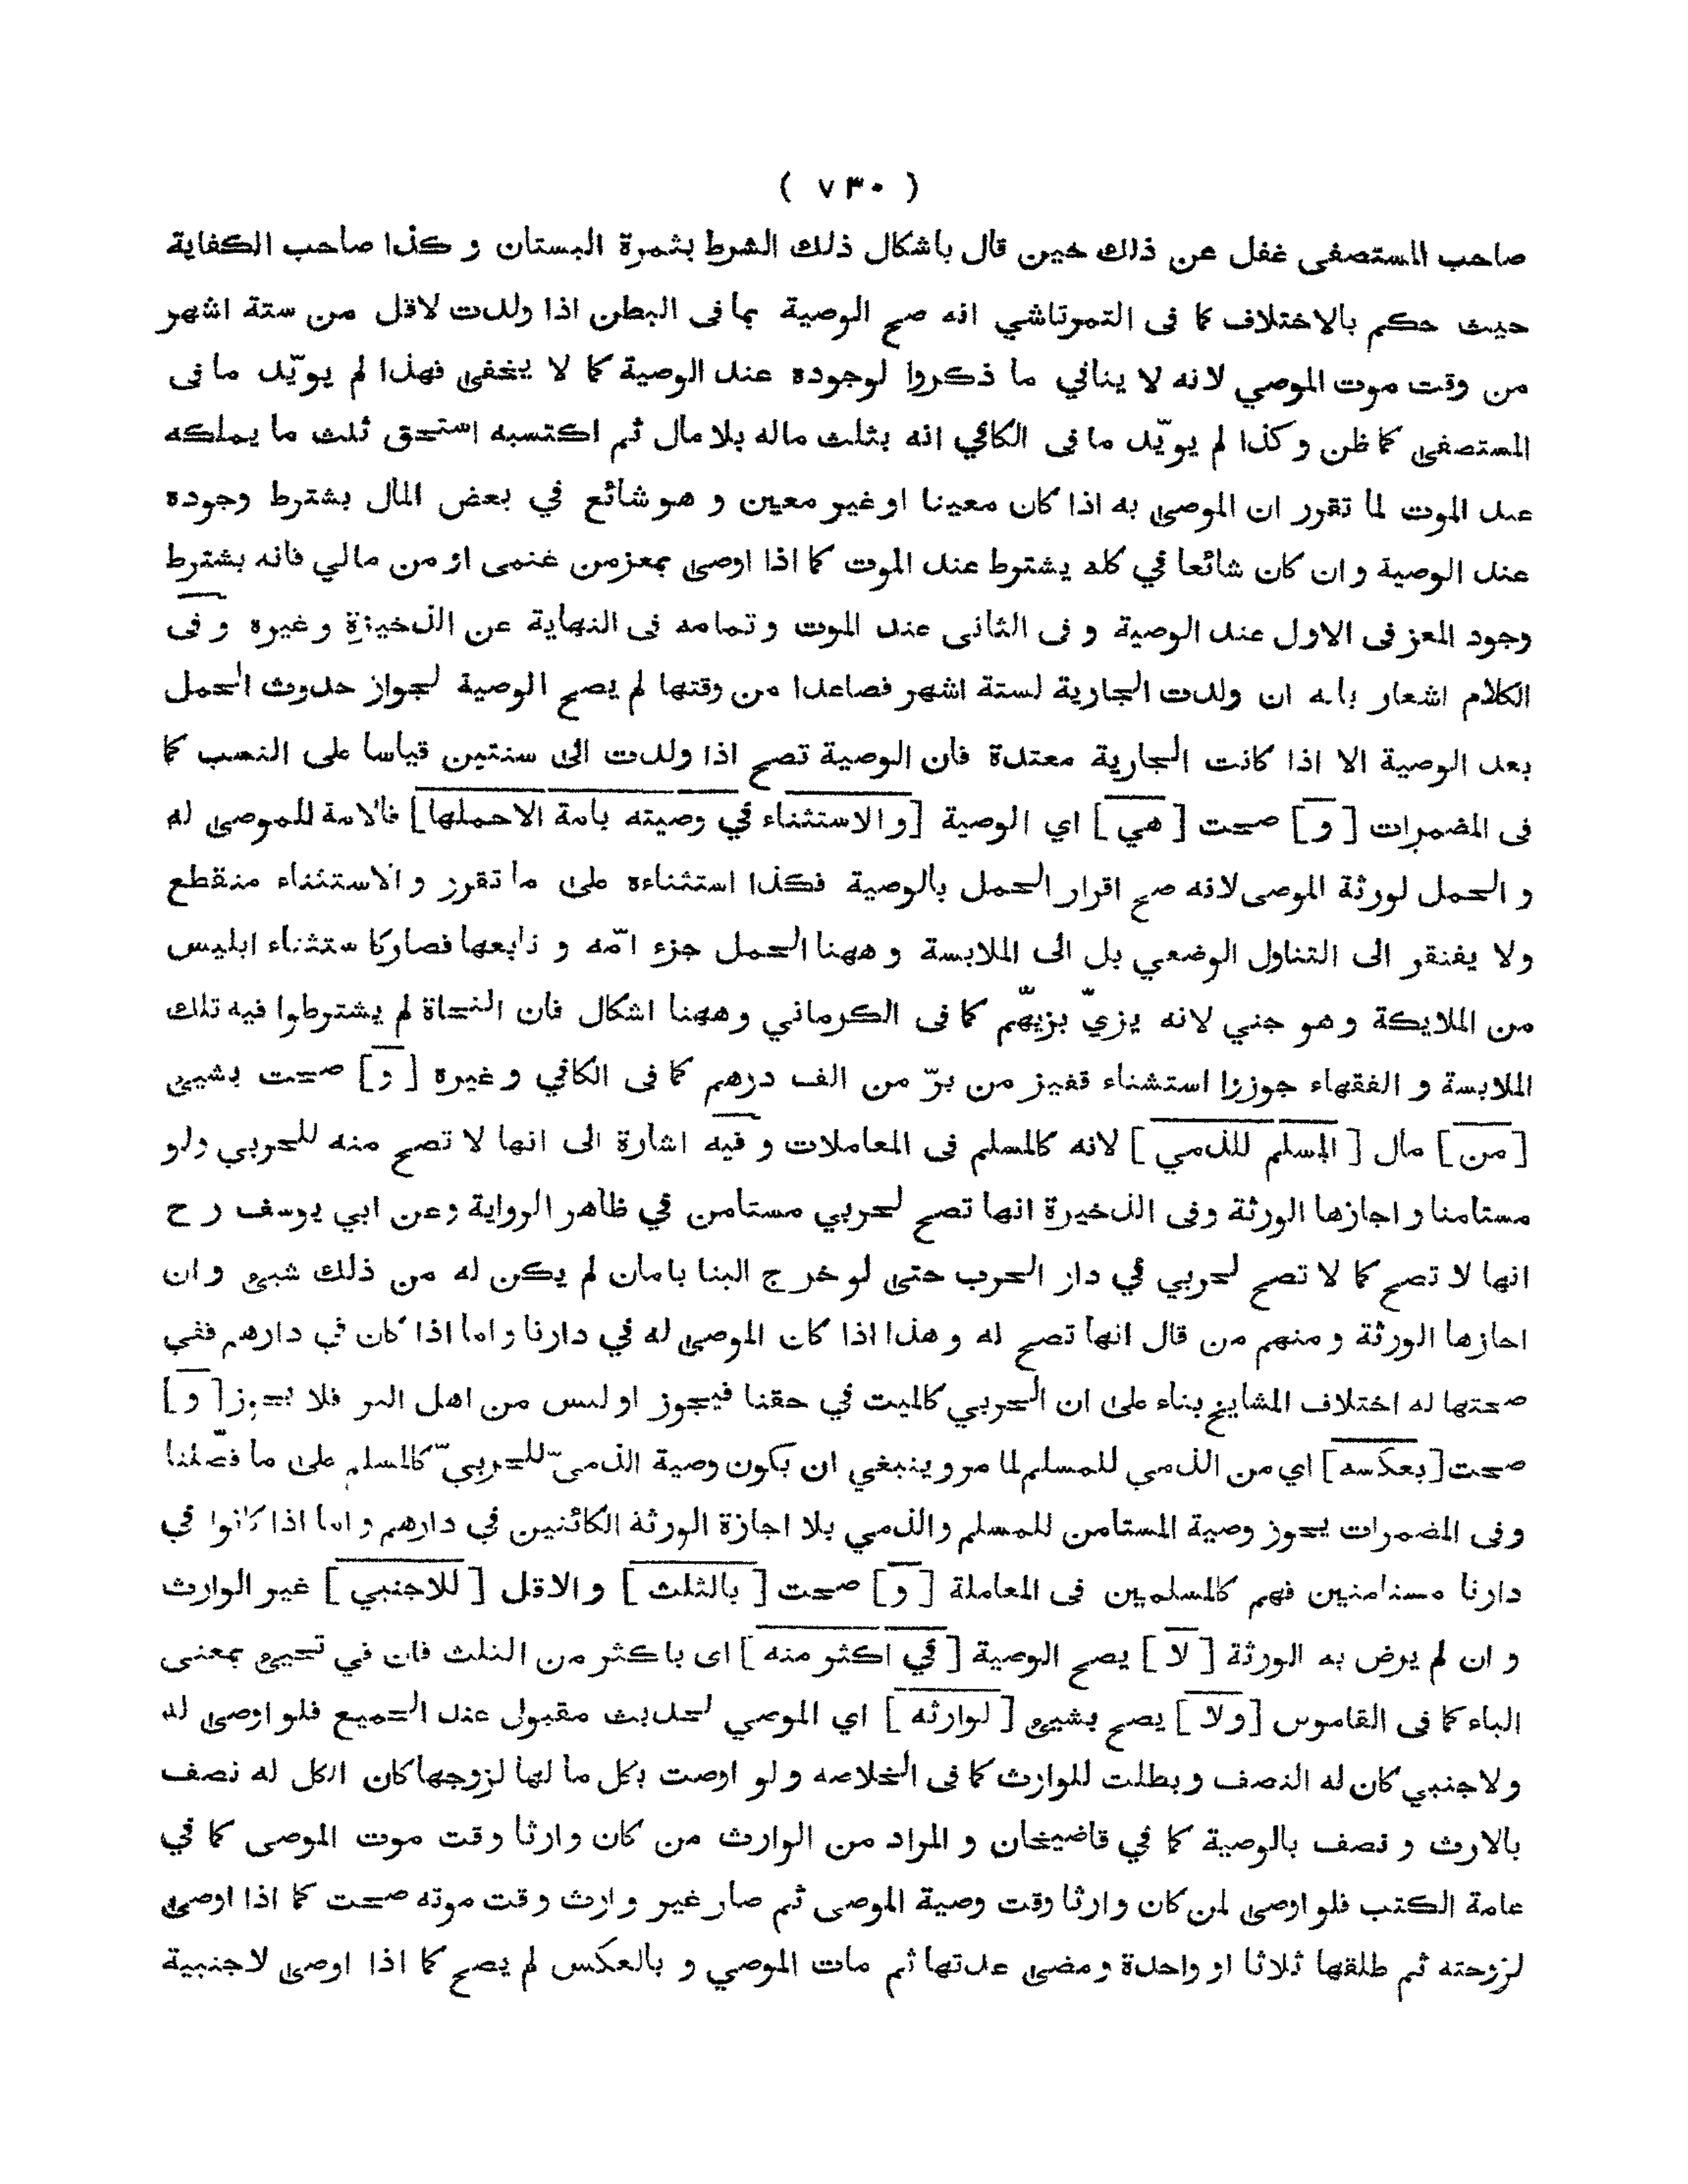 ( ٧٣٠ )
صاحب المستصفى غفل عن ذلك حين قال باشكال ذلك الشرط بثمرة البستان و كذا صاحب الكفاية
حيث حكم بالاختلاف كما فى التمرتاشي انه صح الوصية بما فى البطن اذا ولدت لاقل من ستة اشهر
من وقت موت الموصي لانه لا ينافي ما ذكروا لوجوده عند الوصية كما لا يخفى فهذا لم يويّد ما فى
المستصفى كما ظن و كذا لم يويّد ما فى الكافي انه بثلث ماله بلا مال ثم اكتسبه استحق ثلث ما يملكه
عند الموت لما تقرر ان الموصى به اذا كان معينا او غير معين و هو شائع في بعض المال يشترط وجوده
عند الوصية و ان كان شائعا في كله يشترط عند الموت كما اذا اوصى بمعز من غنمى او من مالي فانه يشترط
وجود المعز فى الاول عند الوصية و فى الثانى عند الموت و تمامه فى النهاية عن الذخيرة و غيره و فى
الكلام اشعار بانه ان ولدت الجارية لستة اشهر فصاعدا من وقتها لم يصح الوصية لجواز حدوث الحمل
بعد الوصية الا اذا كانت الجارية معتدة فان الوصية تصح اذا ولدت الى سنتين قياسا على النسب كما
فى المضمرات [ و ] صحت [ هي ] اي الوصية [ و الاستثناء في وصيته بامة الاحملها ] فالامة للموصى له
و الحمل لورثة الموصى لانه صح اقرار الحمل بالوصية فكذا استثناءه على ما تقرر و الاستثناء منقطع
ولا يفتقر الى التناول الوضعي بل الى الملابسة و ههنا الحمل جزء امّه و تابعها فصار كا ستثناء ابليس
من الملايكة و هو جني لانه يزيّ بزيهّم كما فى الكرماني و ههنا اشكال فان النحاة لم يشترطوا فيه تلك
الملابسة و الفقهاء جوزوا استثناء قفيز من برّ من الف درهم كما فى الكافي و غيره [ و ] صحت بشيئ
[ من ] مال [ المسلم للذمي ] لانه كالمسلم فى المعاملات و فيه اشارة الى انها لا تصح منه للحربي ولو
مستامنا و اجازها الورثة وفى الذخيرة انها تصح لحربي مستامن في ظاهر الرواية وعن ابي يوسف ر ح
انها لا تصح كما لا تصح لحربي في دار الحرب حتى لو خرج الينا بامان لم يكن له من ذلك شيئ و ان
اجازها الورثة و منهم من قال انها تصح له و هذا اذا كان الموصى له في دارنا و اما اذا كان في دارهم ففي
صحتها له اختلاف المشايخ بناء على ان الحربي كالميت في حقنا فيجوز او ليس من اهل البر فلا يجوز [ و ]
صحت [ بعكسه ] اي من الذمي للمسلم لما مر و ينبغي ان يكون وصية الذمىّ للحربيّ كالمسلم على ما فصّلنا
وفى المضمرات يجوز وصية المستامن للمسلم والذمي بلا اجازة الورثة الكائنين في دارهم و اما اذا كانوا في
دارنا مستامنين فهم كالمسلمين فى المعاملة [ و ] صحت [ بالثلث ] و الاقل [ للاجنبي ] غير الوارث
و ان لم يرض به الورثة [ لا ] يصح الوصية [ في اكثر منه ] اى باكثر من الثلث فان في تجيئ بمعنى
الباء كما فى القاموس [ ولا ] يصح بشيئ [ لوارثه ] اي الموصي لحديث مقبول عند الجميع فلو اوصى له
ولاجنبي كان له النصف و بطلت للوارث كما فى الخلاصه و لو اوصت بكل ما لها لزوجها كان الكل له نصف
بالارث و نصف بالوصية كما في قاضيخان و المراد من الوارث من كان وارثا وقت موت الموصى كما في
عامة الكتب فلو اوصى لمن كان وارثا وقت وصية الموصى ثم صار غير وارث وقت موته صحت كما اذا اوصى
لزوجته ثم طلقها ثلاثا او واحدة و مضى عدتها ثم مات الموصي و بالعكس لم يصح كما اذا اوصى لاجنبية